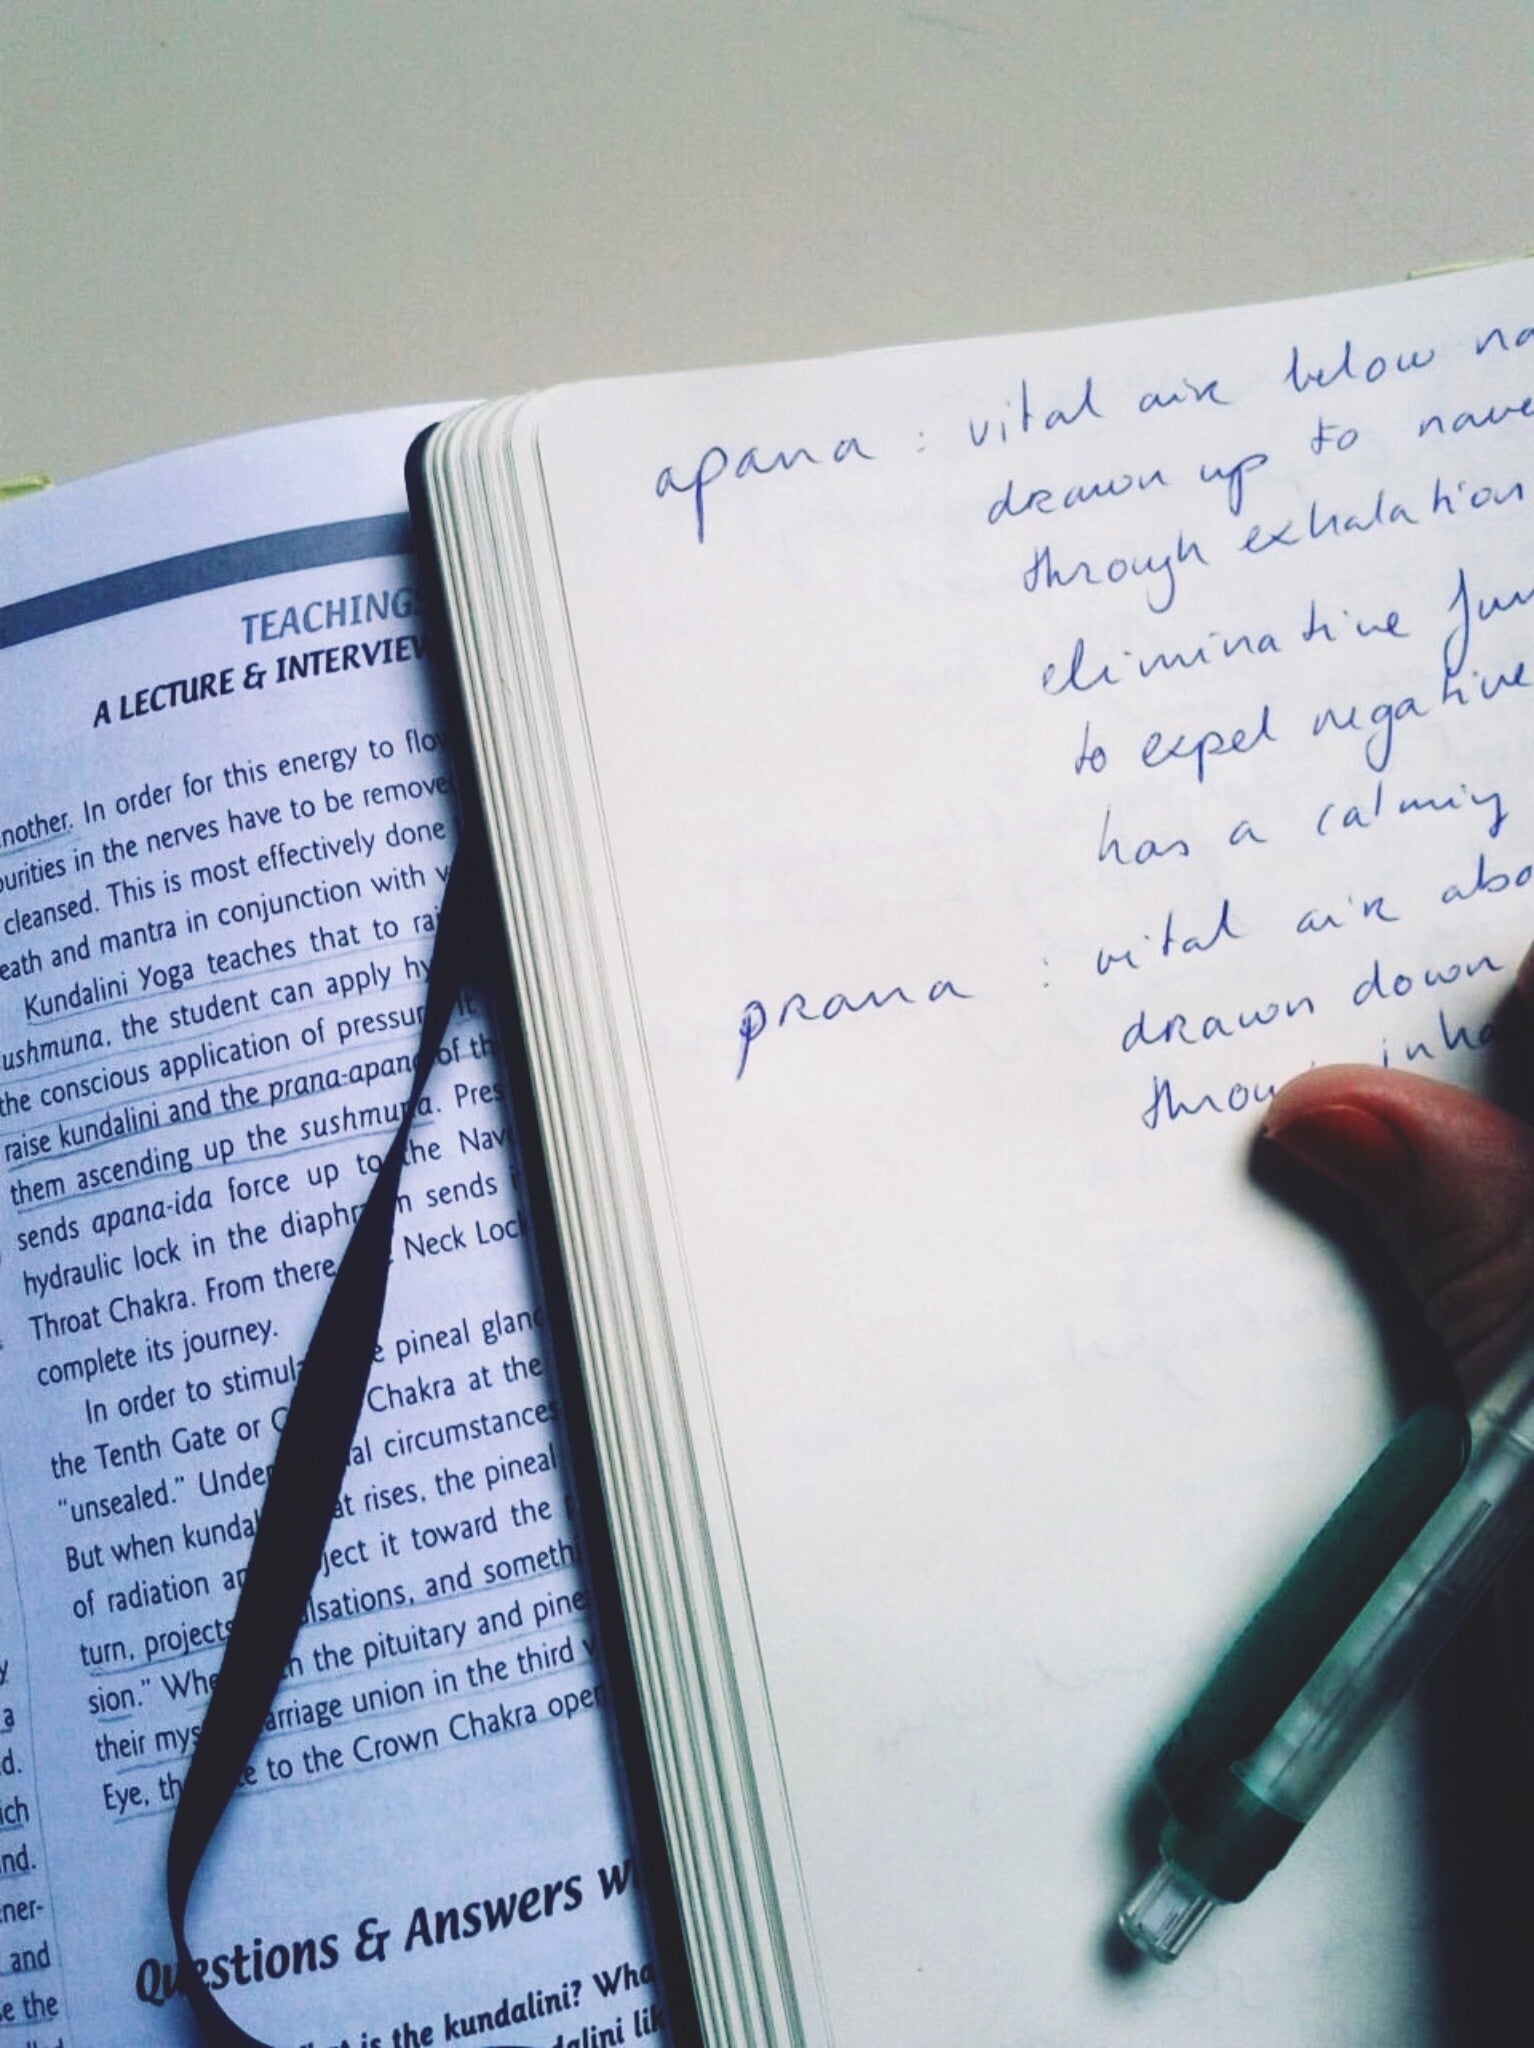 TEACHINGS
A LECTURE & INTERVIEW
nother. In order for this energy to flo
purities in the nerves have to be remove
cleansed. This is most effectively done
eath and mantra in conjunction with v
Kundalini Yoga teaches that to rai
ushmuna, the student can apply hy
the conscious application of pressur It
raise kundalini and the prana-apana of th
them ascending up the sushmuna. Pres
sends apana-ida force up to the Nav
hydraulic lock in the diaphra m sends
Throat Chakra. From there Neck Loc
complete its journey.
In order to stimula e pineal glanc
the Tenth Gate or C Chakra at the
"unsealed." Under al circumstances
But when kundal at rises, the pineal
of radiation a ject it toward the
turn, projects alsations, and somethi
sion." Whe n the pituitary and pine
their mys arriage union in the third v
Eye, th te to the Crown Chakra open
Questions & Answers w
hat is the kundalini? Wha
dalini lik
y
a
d.
ich
nd.
ner-
and
se the
apana : vital air below na
drawn up to nave
through exhalation
eliminative fun
to expel negative
has a calming
prana : vital air abo
drawn down
throu inha